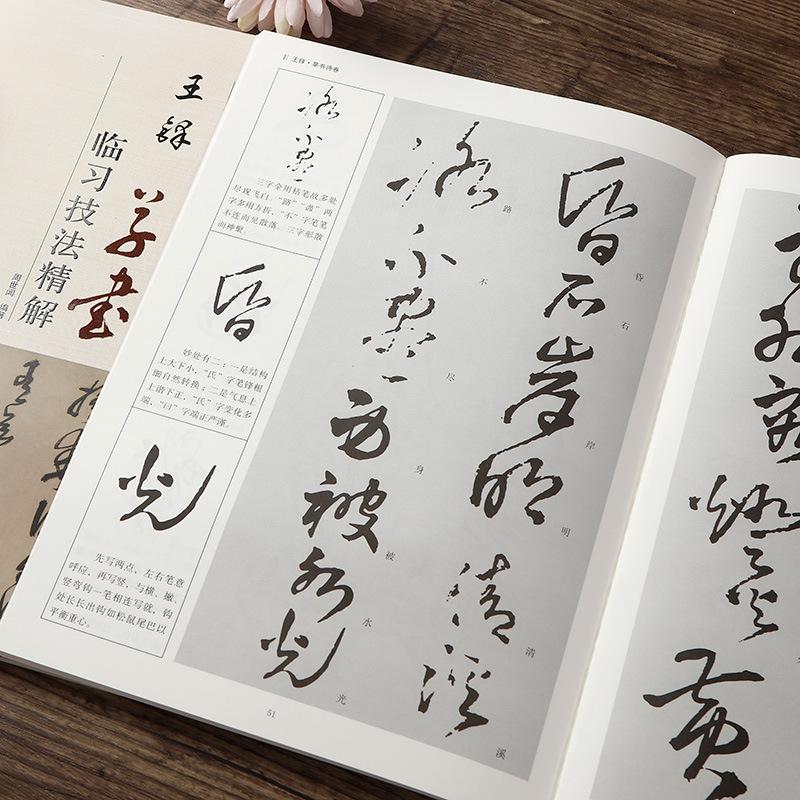 王铎
草書
临习技法精解
周世闻 编著
王铎·草书诗卷
路不盡
三字全用枯笔故多处
尽现飞白。“路”“盡”两
字多用方折，“不”字笔笔
不连而见散落。三字形散
而神聚。
昏
妙处有二：一是结构
上大下小，“氏”字笔锋粗
细自然转换；二是气息上
上谐下正，“氏”字变化多
端，“日”字端正严谨。
光
先写两点，左右笔意
呼应，再写竖，与横、撇、
竖弯钩一笔相连写就，钩
处长长出钩如松鼠尾巴以
平衡重心。
昏石岸明清溪
昏石岸明清溪
路不盡身被水光
路不尽身被水光
51
黄